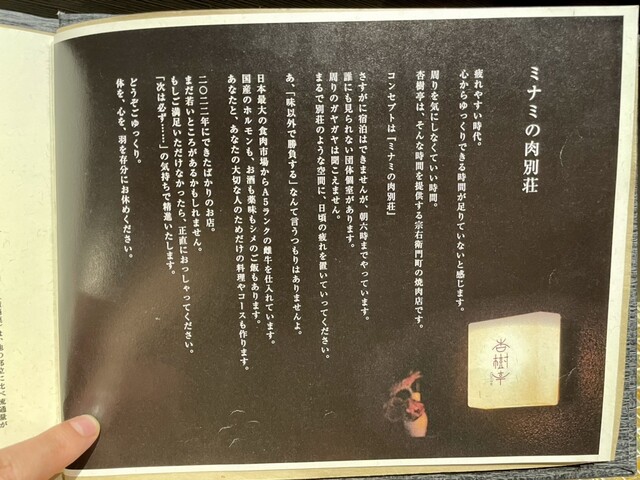 ミナミの肉別荘
疲れやすい時代。
心からゆっくりできる時間が足りていないと感じます。
周りを気にしなくていい時間。
杏樹亭は、そんな時間を提供する宗右衛門町の焼肉店です。
コンセプトは『ミナミの肉別荘』
さすがに宿泊はできませんが、朝六時までやっています。
誰にも見られない団体個室があります。
周りのガヤガヤは聞こえません。
まるで別荘のような空間に、日頃の疲れを置いていってください。
あ、「味以外で勝負する」なんて言うつもりはありませんよ。
日本最大の食肉市場からA5ランクの雌牛を仕入れています。
国産のホルモンも、お酒も薬味もシメのご飯もあります。
あなたと、あなたの大切な人のためだけの料理やコースも作ります。
二〇二二年にできたばかりのお店。
まだ若いところがあるかもしれません。
もしご満足いただけなかったら、正直におっしゃってください。
「次は必ず……」の気持ちで精進いたします。
どうぞごゆっくり。
体を、心を、羽を存分にお休めください。
杏樹亭